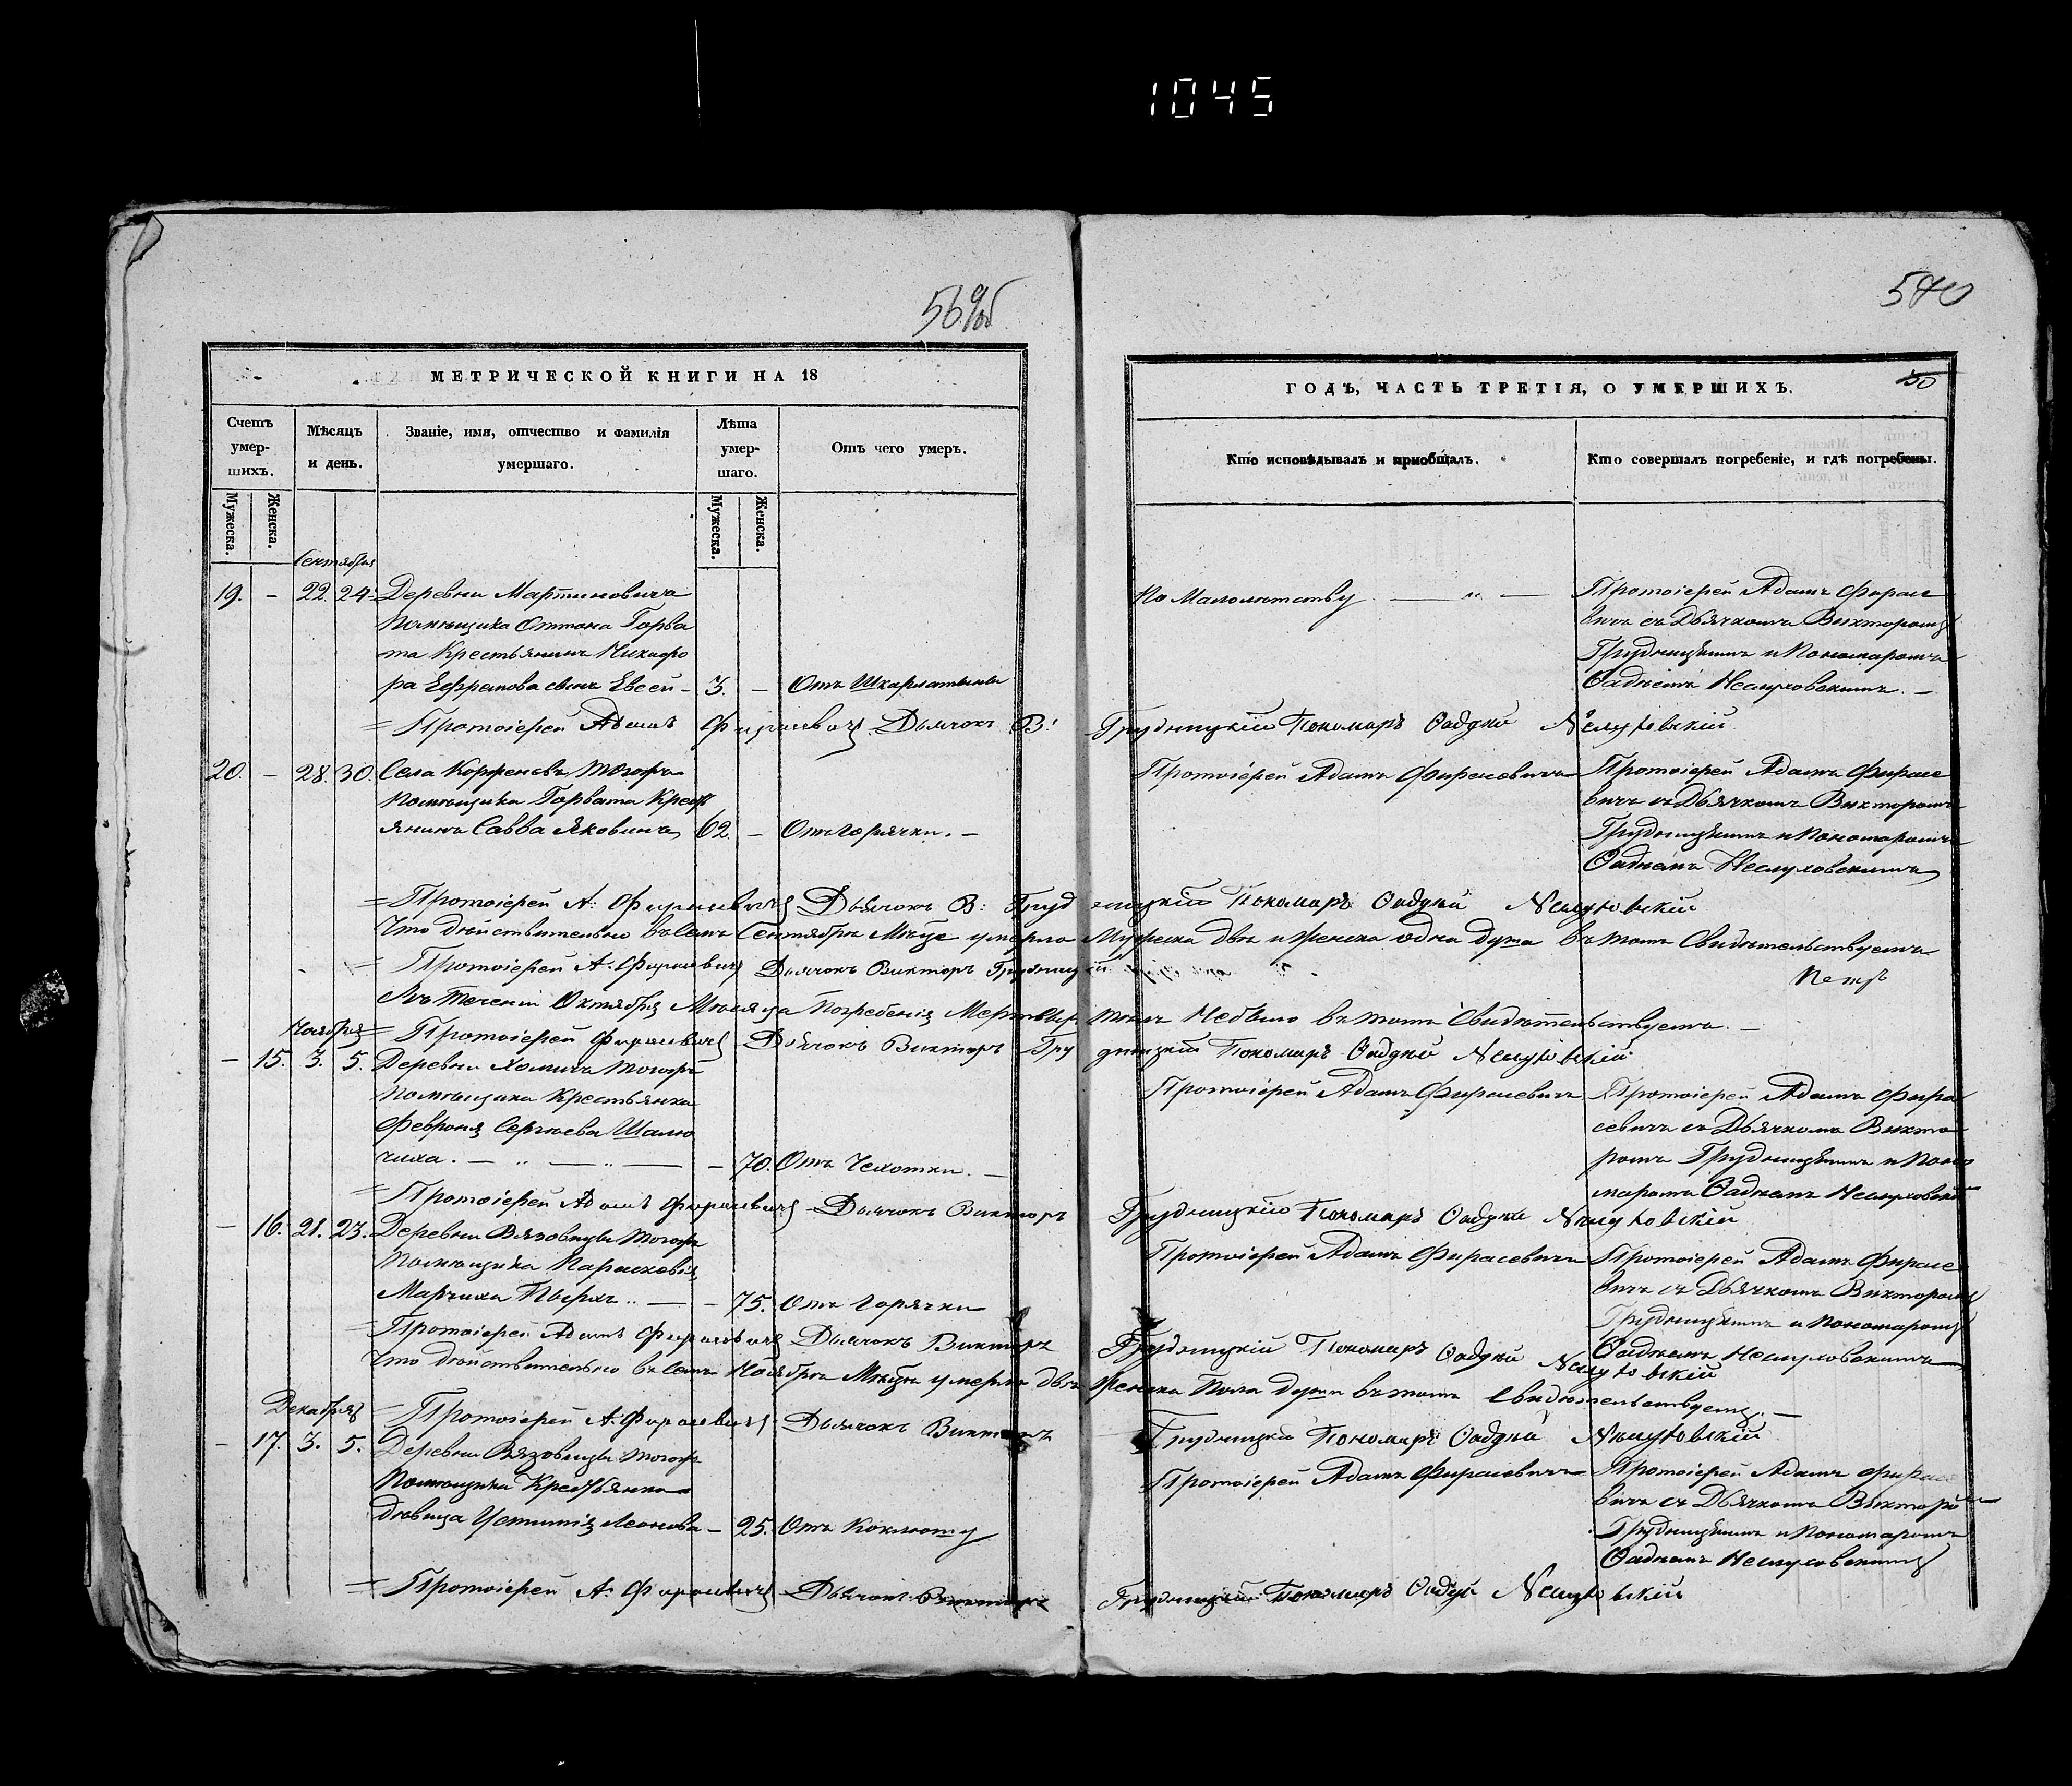 1045
569об
570
МЕТРИЧЕСКОЙ КНИГИ НА 18
Счетъ умер-шихъ.
Мѣсяцъ и день.
Званіе, имя, отчество и фамилія умершаго.
Лѣта умер-шаго.
Отъ чего умеръ.
Мужеска.
Женска.
Мужеска.
Женска.
ГОДЪ, ЧАСТЬ ТРЕТІЯ, О УМЕРШИХЪ.
50
Кто исповѣдывалъ и приобщалъ.
Кто совершалъ погребеніе, и гдѣ погребены.
Сентября
19. - 22. 24. Деревни Мартиновичъ
помѣщика Оттона Горва
та Крестьянинъ Никифо
ра Ефремова сынъ Евсей - 3. - Отъ Шкарлатыны
По Малолѣтству
Протоіерей Адамъ Фирасе
вичъ съ Дьячкомъ Викторомъ
Грудницкимъ и Пономаромъ
Фадѣемъ Неслуховскимъ. -
= Протоіерей Адамъ Фирасевичъ Дьячокъ В: Грудницкій Пономаръ Фадѣй Неслуховскій
20. - 28. 30. Села Корженевъ тогожъ
помѣщика Горвата Крест
янинъ Савва Яковинъ 62. - Отъ Горячки. -
Протоіерей Адамъ Фирасевичъ
Протоіерей Адамъ Фирасе
вичъ съ Дьячкомъ Викторомъ
Грудницкимъ и Пономаромъ
Фадѣемъ Неслуховскимъ
= Протоіерей А: Фирасевичъ Дьячокъ В: Грудницкій Пономаръ Фадѣй Неслуховскій
Что дѣйствительно въ семъ Сентябрѣ Мѣцѣ умерло Мужеска двѣ и Женска одна душа въ томъ Свидѣтельствуемъ
= Протоіерей А. Фирасевичъ Дьячокъ Викторъ Грудницкій
Въ теченіи Октября Мѣсяца Погребенія Мертвыхъ тѣлъ Небыло въ томъ Свидѣтельствуемъ. -
Ноября
= Протоіерей Фирасевичъ Дьячокъ Викторъ Грудницкій Пономаръ Фадѣй Неслуховскій
- 15. 3. 5. Деревни Хомичъ тогожъ
помѣщика Крестьянка
Февронія Сергѣева Шалю
чиха. - - 70. Отъ Чехотки. -
Протоіерей Адамъ Фирасевичъ
Протоіерей Адамъ Фира
севичъ съ Дьячкомъ Викто
ромъ Грудницкимъ и Поно
маромъ Фадѣемъ Неслуховским
= Протоіерей Адамъ Фирасевичъ Дьячокъ Викторъ Грудницкій Пономаръ Фадѣй Неслуховскій
- 16. 21. 23. Деревни Вязовицы тогожъ
Помѣщика Параскевія
- 75. Отъ Горячки
Протоіерей Адамъ Фирасевичъ
Протоіерей Адамъ Фирасе
вичъ съ Дьячкомъ Викторомъ
Грудницкимъ и Пономаромъ
Фадѣемъ Неслуховскимъ
= Протоіерей Адамъ Фирасевичъ Дьячокъ Викторъ Грудницкій Пономаръ Фадѣй Неслуховскій
Что дѣйствительно въ семъ Ноябрѣ Мѣцѣ умерло двѣ Женска Пола души въ томъ Свидѣтельствуемъ. -
Декабря
= Протоіерей А. Фирасевичъ Дьячокъ Викторъ Грудницкій Пономаръ Фадѣй Неслуховскій
- 17. 3. 5. Деревни Вязовицы тогожъ
Помѣщика Крестьянка
дѣвица Устинія Леонова - 25. Отъ Коклюшу
Протоіерей Адамъ Фирасевичъ
Протоіерей Адамъ Фирасе
вичъ съ Дьячкомъ Викторо
Грудницкимъ и Пономаромъ
Фадѣемъ Неслуховскимъ
= Протоіерей А. Фирасевичъ Дьячокъ Викторъ Грудницкій Пономаръ Фадѣй Неслуховскій